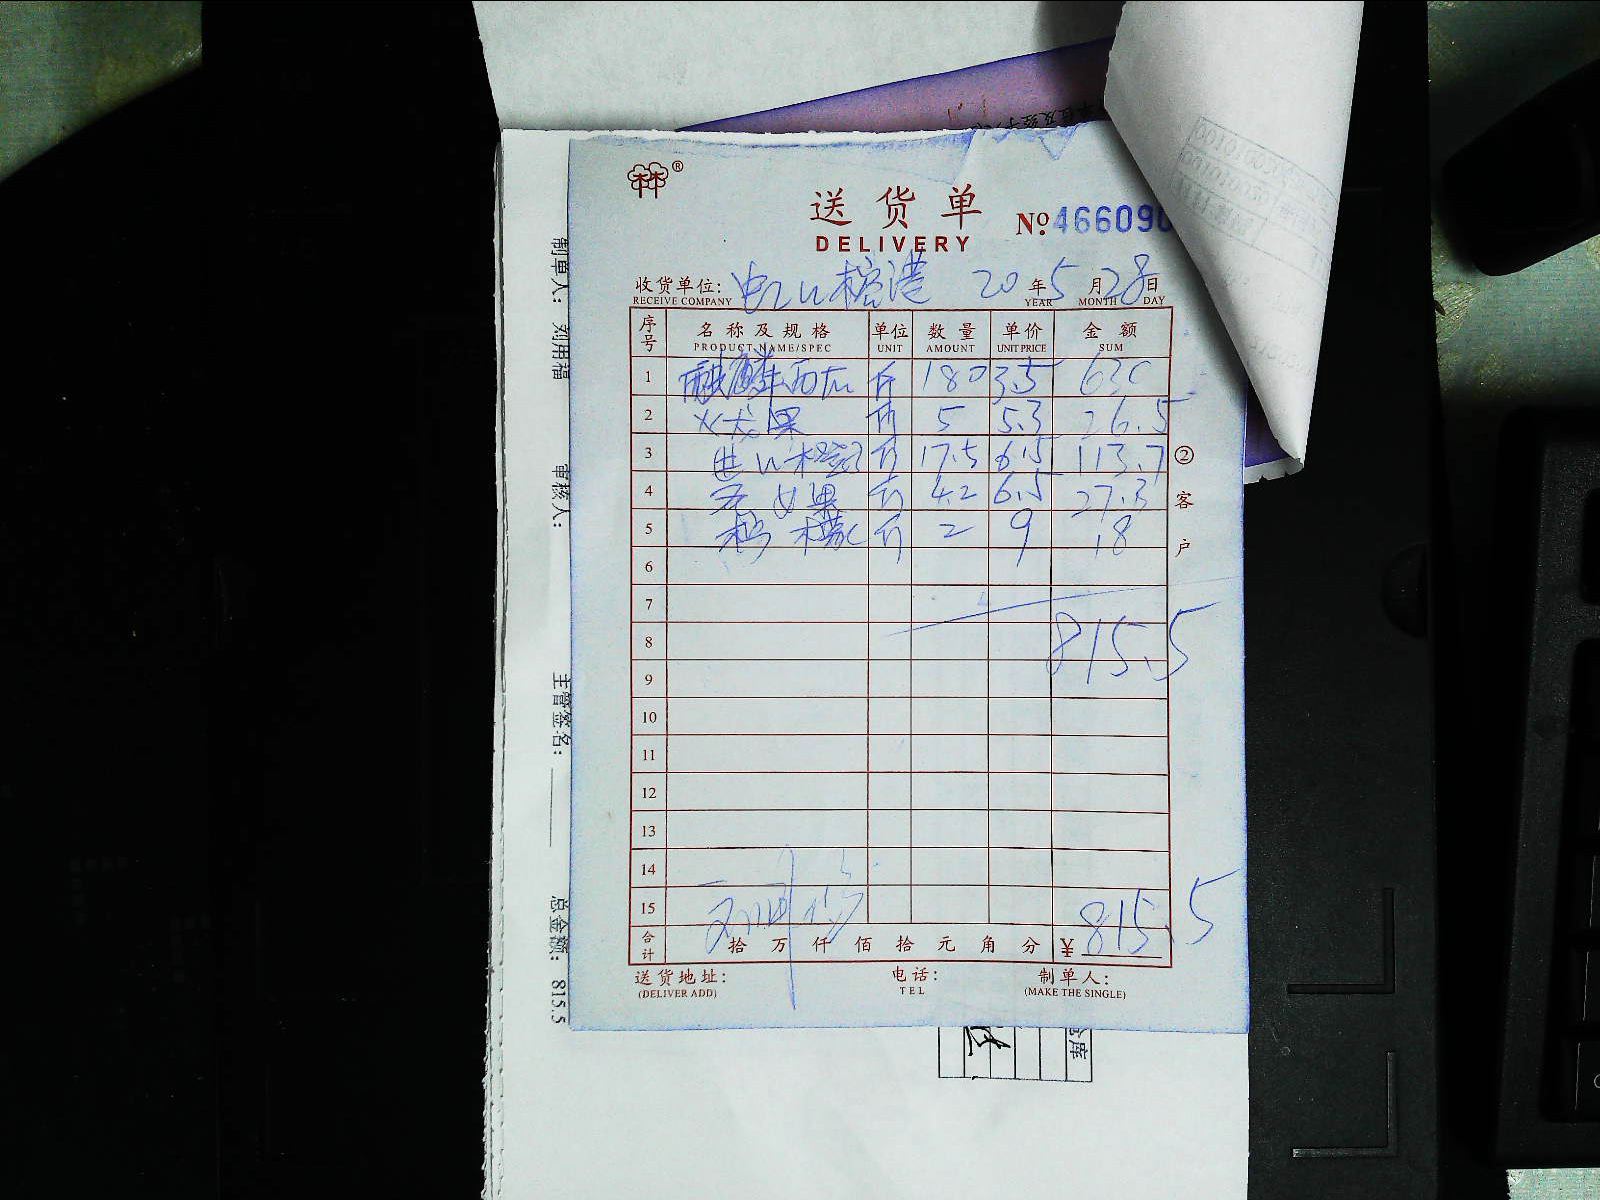 送货单
DELIVERY
No. 466090
收货单位: 20年5月28日
RECEIVE COMPANY YEAR MONTH DAY
序号 名称及规格 单位 数量 单价 金额
PRODUCT NAME/SPEC UNIT AMOUNT UNIT PRICE SUM
1 麒麟西瓜 斤 180 3.5 630
2 火龙果 斤 5 5.3 26.5
3 斤 17.5 6.5 113.7
4 斤 4.2 6.5 27.3
5 柠檬 斤 2 9 18
6
7
8 815.5
9
10
11
12
13
14
15
合计 拾万仟佰拾元角分 ¥815.5
送货地址: 电话: 制单人:
(DELIVER ADD) TEL (MAKE THE SINGLE)
②客户
制单人: 刘用福
审核人:
主管签名:
总金额: 815.5